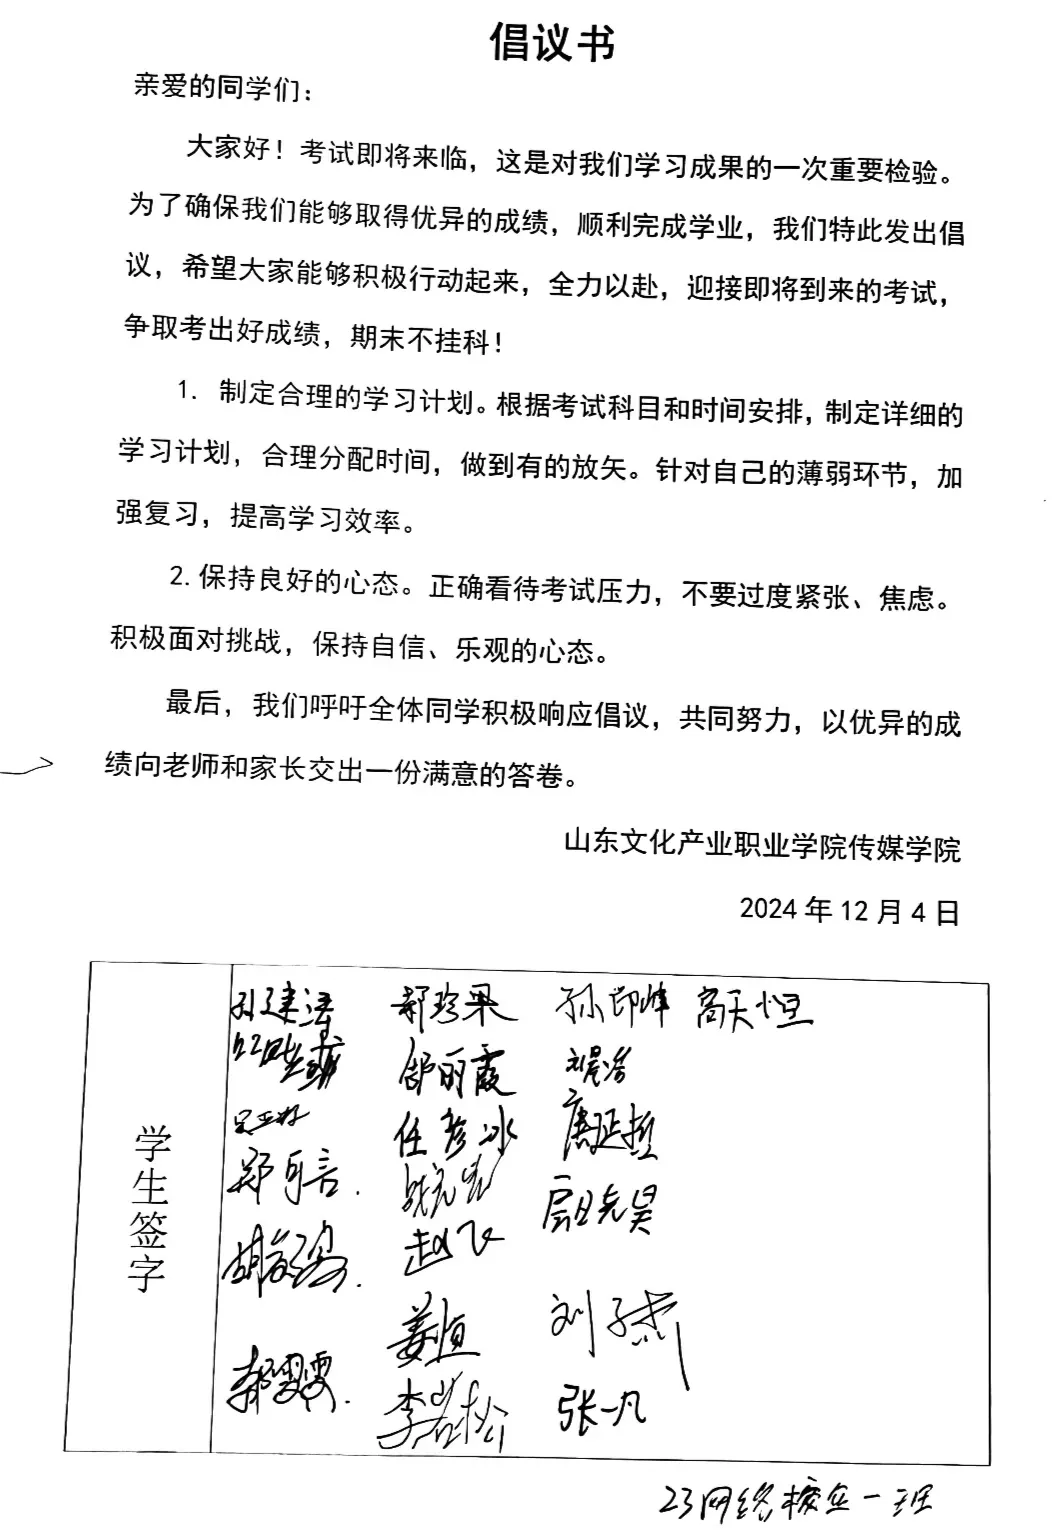 倡议书
亲爱的同学们：
大家好！考试即将来临，这是对我们学习成果的一次重要检验。
为了确保我们能够取得优异的成绩，顺利完成学业，我们特此发出倡
议，希望大家能够积极行动起来，全力以赴，迎接即将到来的考试，
争取考出好成绩，期末不挂科！
1. 制定合理的学习计划。根据考试科目和时间安排，制定详细的
学习计划，合理分配时间，做到有的放矢。针对自己的薄弱环节，加
强复习，提高学习效率。
2.保持良好的心态。正确看待考试压力，不要过度紧张、焦虑。
积极面对挑战，保持自信、乐观的心态。
最后，我们呼吁全体同学积极响应倡议，共同努力，以优异的成
绩向老师和家长交出一份满意的答卷。
山东文化产业职业学院传媒学院
2024年12月4日
学生签字
郑珍果 孙印峰 高天恒
舒丽霞
任彦冰 唐延哲
赵飞
姜恒 刘子杰
李若松 张一凡
23网络 一班